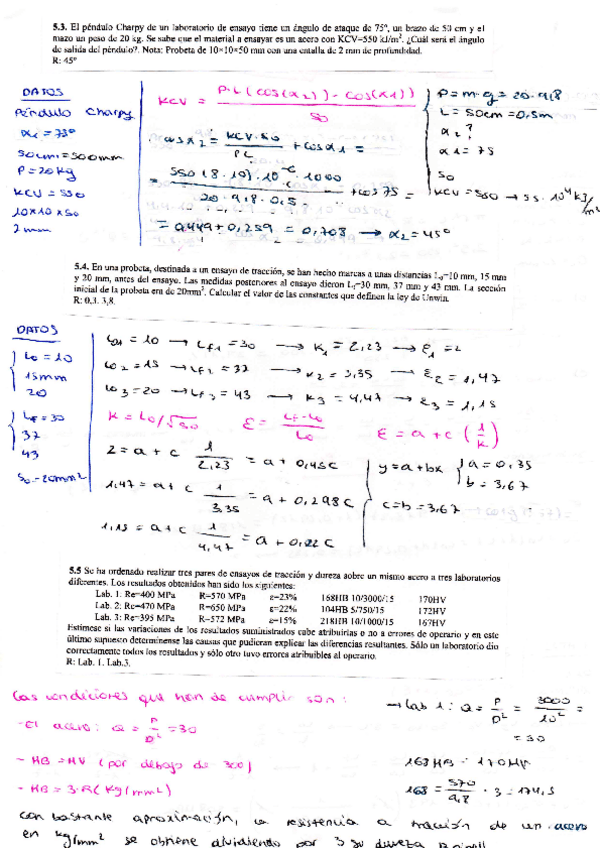 5.3. El péndulo Charpy de un laboratorio de ensayo tiene un ángulo de ataque de 75º, un brazo de 50 cm y el
mazo un peso de 20 kg. Se sabe que el material a ensayar es un acero con KCV=550 kJ/m². ¿Cuál será el ángulo
de salida del péndulo?. Nota: Probeta de 10×10×50 mm con una entalla de 2 mm de profundidad.
R: 45º
DATOS
Péndulo Charpy
50cm = 500mm
P = 20kg
KCV = 550
10x10x50
2mm
KCV = P·L(cos(α2)) - cos(α1)) / S0
cos α2 = KCV·S0 / PL + cos α1 =
+ cos 75 =
20·9,8·0,5
= 0,449 + 0,259 = 0,708 → α2 = 45º
P = m·g = 20·9,8
L = 50cm = 0,5m
α2?
α1 = 75
S0
5.4. En una probeta, destinada a un ensayo de tracción, se han hecho marcas a unas distancias L0=10 mm, 15 mm
y 20 mm, antes del ensayo. Las medidas posteriores al ensayo dieron Lf=30 mm, 37 mm y 43 mm. La sección
inicial de la probeta era de 20mm². Calcular el valor de las constantes que definen la ley de Unwin.
R: 0,3. 3,8.
DATOS
L0 = 10
15mm
20
37
43
S0 = 20mm²
L01 = 10 → Lf1 = 30 → K1 = 2,23 → ε1 = 2
L02 = 15 → Lf2 = 37 → K2 = 3,35 → ε2 = 1,47
L03 = 20 → Lf3 = 43 → K3 = 4,47 → ε3 = 1,15
K = L0/√S0 ε = Lf-L0 / L0 ε = a + c (1/K)
2 = a + c 1/2,23 = a + 0,45c
1,47 = a + c 1/3,35 = a + 0,298c
1,15 = a + c 1/4,47 = a + 0,22c
y = a + bx { a = 0,35
b = 3,67
c = b = 3,67
5.5 Se ha ordenado realizar tres pares de ensayos de tracción y dureza sobre un mismo acero a tres laboratorios
diferentes. Los resultados obtenidos han sido los siguientes:
Lab. 1: Re=400 MPa R=570 MPa ε=23% 168HB 10/3000/15 170HV
Lab. 2: Re=470 MPa R=650 MPa ε=22% 104HB 5/750/15 172HV
Lab. 3: Re=395 MPa R=572 MPa ε=15% 218HB 10/1000/15 167HV
Estímese si las variaciones de los resultados suministrados cabe atribuirlas o no a errores de operario y en este
último supuesto determínense las causas que pudieran explicar las diferencias resultantes. Sólo un laboratorio dio
correctamente todos los resultados y sólo otro tuvo errores atribuibles al operario.
R: Lab. 1. Lab.3.
Las condiciones que han de cumplir son:
- El acero: Q = P/D² = 30
- HB = HV (por debajo de 300)
- HB = 3·R (Kg/mm²)
→ Lab 1: Q = P/D² = 3000/10² =
= 30
168 = 570/9,8 · 3 = 174,5
con bastante aproximación, la resistencia a tracción de un acero
en kg/mm² se obtiene dividiendo por 3 su dureza